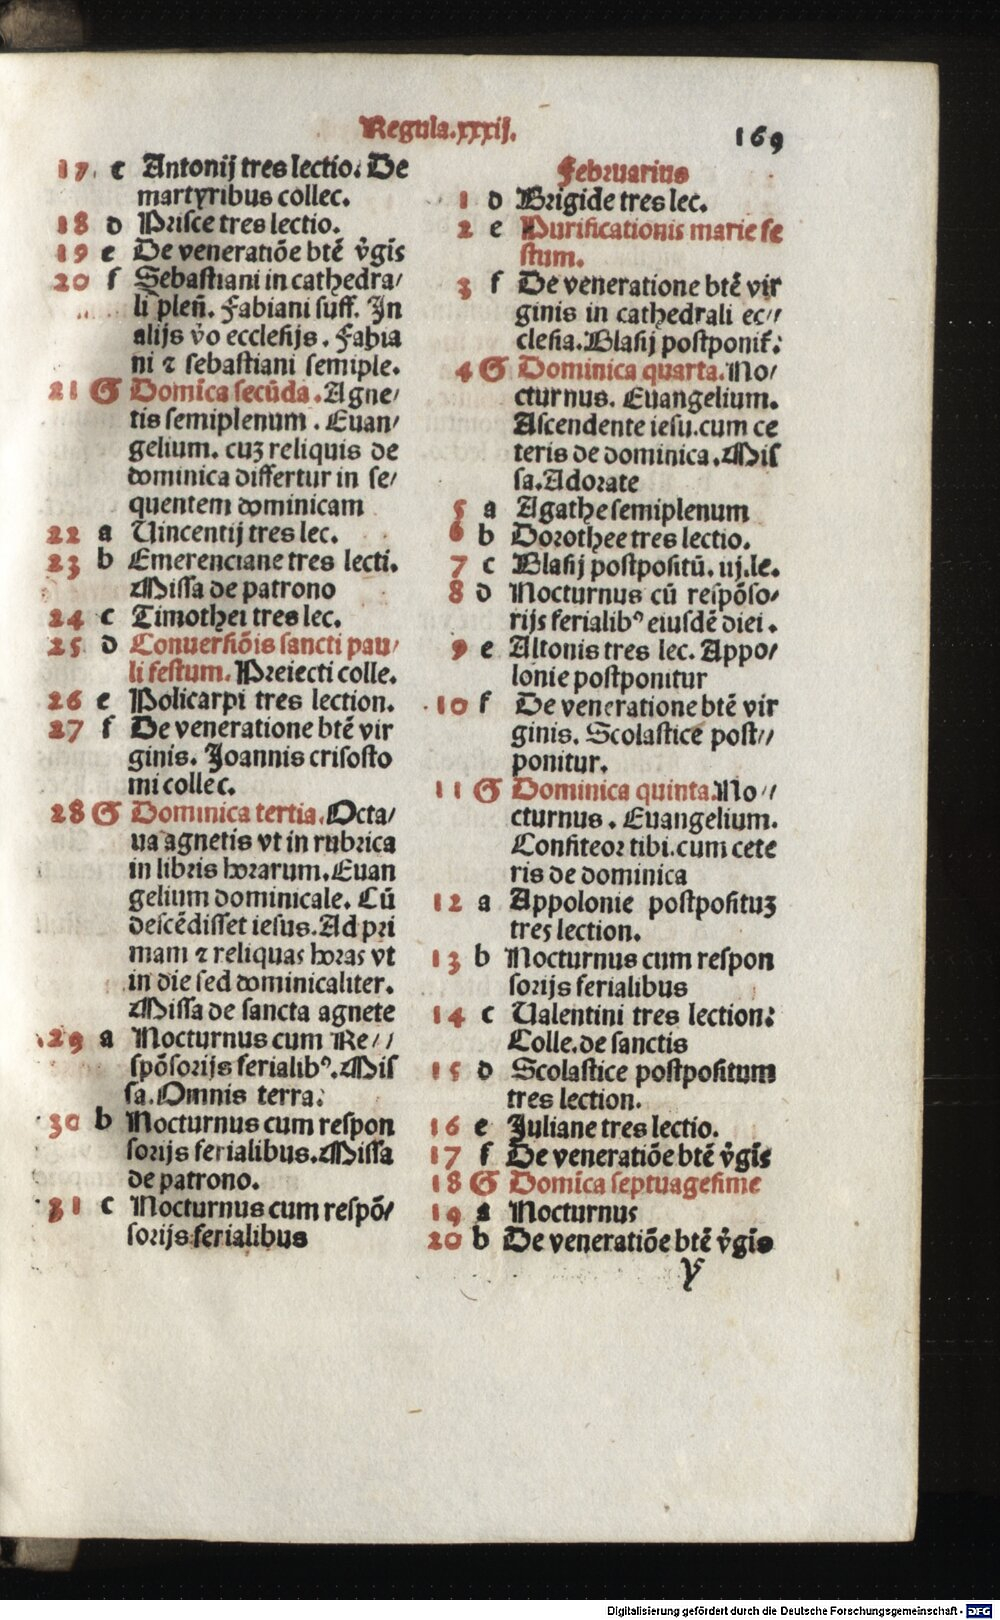 Regula.xxxij.
169
17 c Antonij tres lectio. De
martyribus collec.
18 d Prisce tres lectio.
19 e De veneratiōe btē v̄gīs
20 f Sebastiani in cathedra/
li pleñ. Fabiani suff. In
alijs v̄o ecclesijs. Fabia
ni ⁊ sebastiani semiple.
21 G Domīca secūda. Agne/
tis semiplenum. Euan/
gelium. cuꝫ reliquis de
dominica differtur in se/
quentem dominicam
22 a Uincentij tres lec.
23 b Emerenciane tres lecti.
Missa de patrono
24 c Timothei tres lec.
25 d Conuersiōis sancti pau/
li festum. Preiecti colle.
26 e Policarpi tres lection.
27 f De veneratione btē vir
ginis. Joannis crisosto
mi collec.
28 G Dominica tertia. Octa/
ua agnetis vt in rubrica
in libris horarum. Euan
gelium dominicale. Cū
descēdisset iesus. Ad pri
mam ⁊ reliquas horas vt
in die sed dominicaliter.
Missa de sancta agnete
29 a Nocturnus cum Re//
spōsorijs ferialibꝰ. Mis
sa. Omnis terra:
30 b Nocturnus cum respon
sorijs ferialibus. Missa
de patrono.
31 c Nocturnus cum respō/
sorijs ferialibus
Februarius
1 d Brigide tres lec.
2 e Purificationis marie fe
stum.
3 f De veneratione btē vir
ginis in cathedrali ec//
clesia. Blasij postponit̄:
4 G Dominica quarta. No/
cturnus. Euangelium.
Ascendente iesu. cum ce
teris de dominica. Mis
sa. Adorate
5 a Agathe semiplenum
6 b Dorothee tres lectio.
7 c Blasij postpositū. iij. le.
8 d Nocturnus cū respōso/
rijs ferialibꝰ eiusdē diei.
9 e Altonis tres lec. Appo/
lonie postponitur
10 f De veneratione btē vir
ginis. Scolastice post//
ponitur.
11 G Dominica quinta. No//
cturnus. Euangelium.
Confiteor tibi. cum cete
ris de dominica
12 a Appolonie postposituꝫ
tres lection.
13 b Nocturnus cum respon
sorijs ferialibus
14 c Ualentini tres lection:
Colle. de sanctis
15 d Scolastice postpositum
tres lection.
16 e Juliane tres lectio.
17 f De veneratiōe btē v̄gīs
18 G Domīca septuagesime
19 a Nocturnus
20 b De veneratiōe btē v̄gīs
y
Digitalisierung gefördert durch die Deutsche Forschungsgemeinschaft - DFG